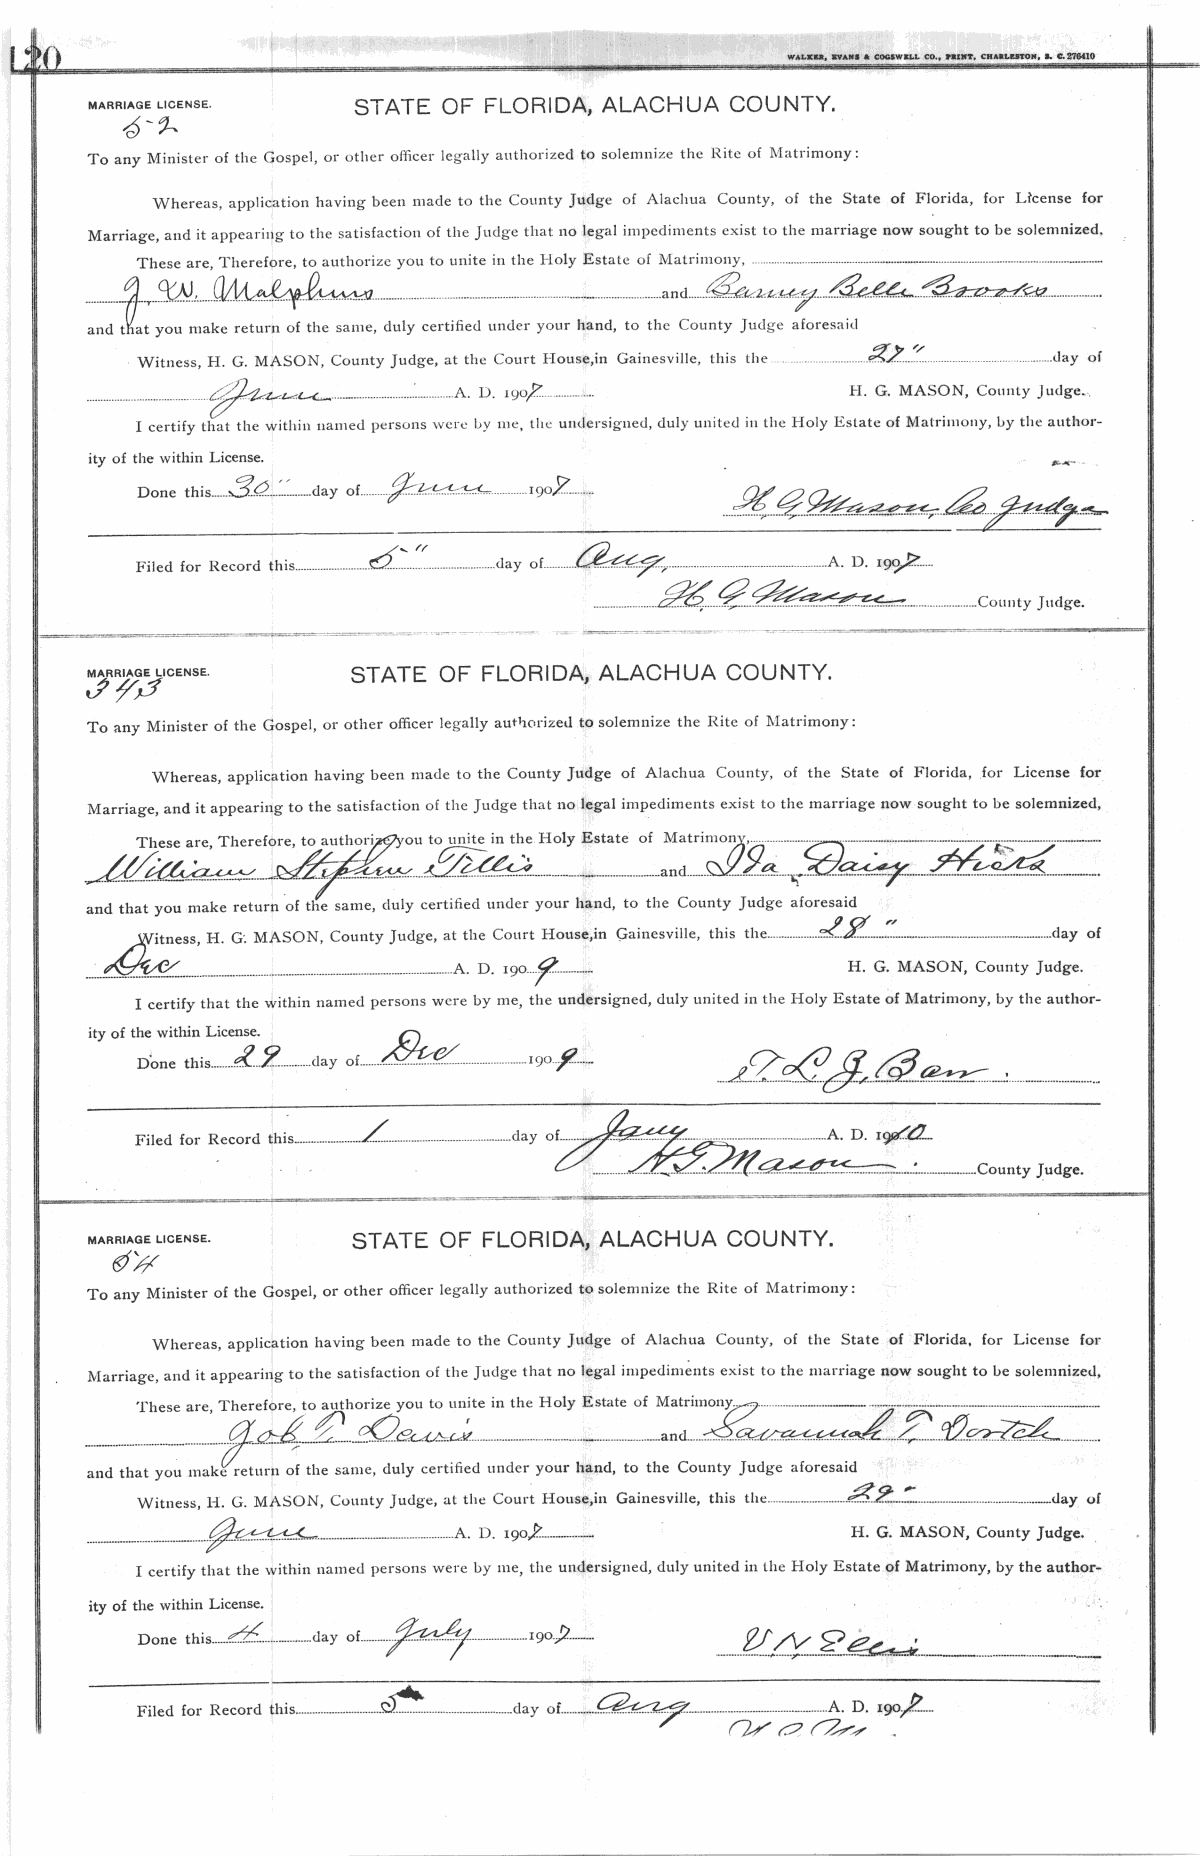 120
WALKER, EVANS & COGSWELL CO., PRINT, CHARLESTON, S. C. 276410
MARRIAGE LICENSE. STATE OF FLORIDA, ALACHUA COUNTY.
52
To any Minister of the Gospel, or other officer legally authorized to solemnize the Rite of Matrimony:
Whereas, application having been made to the County Judge of Alachua County, of the State of Florida, for License for
Marriage, and it appearing to the satisfaction of the Judge that no legal impediments exist to the marriage now sought to be solemnized.
These are, Therefore, to authorize you to unite in the Holy Estate of Matrimony,
J. W. Malphurs and Barney Belle Brooks
and that you make return of the same, duly certified under your hand, to the County Judge aforesaid
Witness, H. G. MASON, County Judge, at the Court House, in Gainesville, this the 27" day of
June A. D. 1907 H. G. MASON, County Judge.
I certify that the within named persons were by me, the undersigned, duly united in the Holy Estate of Matrimony, by the author-
ity of the within License.
Done this 30" day of June 1907
H. G. Mason, Co Judge
Filed for Record this 5" day of Aug. A. D. 1907
H. G. Mason County Judge.
MARRIAGE LICENSE. STATE OF FLORIDA, ALACHUA COUNTY.
343
To any Minister of the Gospel, or other officer legally authorized to solemnize the Rite of Matrimony:
Whereas, application having been made to the County Judge of Alachua County, of the State of Florida, for License for
Marriage, and it appearing to the satisfaction of the Judge that no legal impediments exist to the marriage now sought to be solemnized,
These are, Therefore, to authorize you to unite in the Holy Estate of Matrimony,
William Stephen Tillis and Ida Daisy Hicks
and that you make return of the same, duly certified under your hand, to the County Judge aforesaid
Witness, H. G. MASON, County Judge, at the Court House, in Gainesville, this the 28" day of
Dec A. D. 1909 H. G. MASON, County Judge.
I certify that the within named persons were by me, the undersigned, duly united in the Holy Estate of Matrimony, by the author-
ity of the within License.
Done this 29 day of Dec 1909
T. L. Z. Barr.
Filed for Record this 1 day of Jany A. D. 1910
H. G. Mason. County Judge.
MARRIAGE LICENSE. STATE OF FLORIDA, ALACHUA COUNTY.
54
To any Minister of the Gospel, or other officer legally authorized to solemnize the Rite of Matrimony:
Whereas, application having been made to the County Judge of Alachua County, of the State of Florida, for License for
Marriage, and it appearing to the satisfaction of the Judge that no legal impediments exist to the marriage now sought to be solemnized,
These are, Therefore, to authorize you to unite in the Holy Estate of Matrimony
Job. T. Davis and Savannah T. Dortch
and that you make return of the same, duly certified under your hand, to the County Judge aforesaid
Witness, H. G. MASON, County Judge, at the Court House, in Gainesville, this the 29" day of
June A. D. 1907 H. G. MASON, County Judge.
I certify that the within named persons were by me, the undersigned, duly united in the Holy Estate of Matrimony, by the author-
ity of the within License.
Done this 4 day of July 1907
V. N. Ellis
Filed for Record this 5 day of Aug A. D. 1907